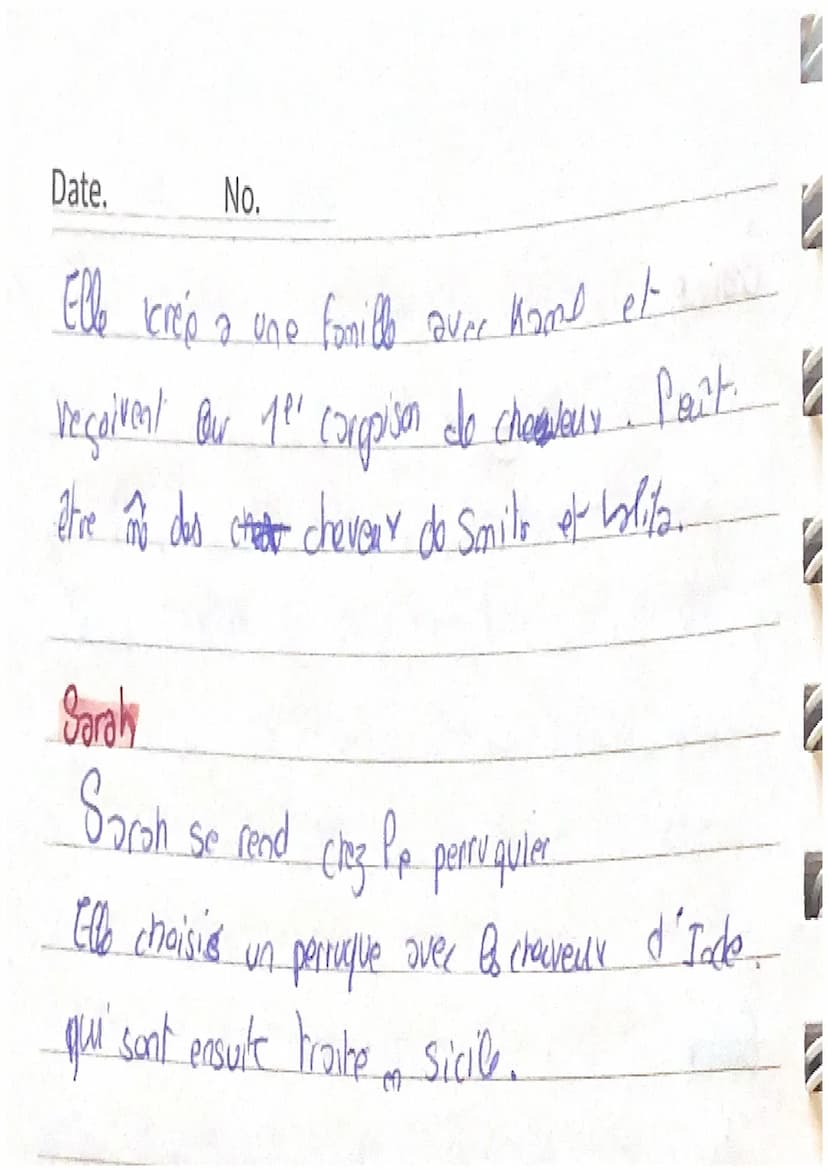 Date. No.
Elle créé a une famille avec Kamal et
reçoivent leur 1er cargaison de cheveux. Peut-
être mê des cheveux de Smita et Lalita.
Sarah
Sarah se rend chez le perruquier
Elle choisis un perruque avec les cheveux d'Inde.
qui sont ensuite traite en Sicile.